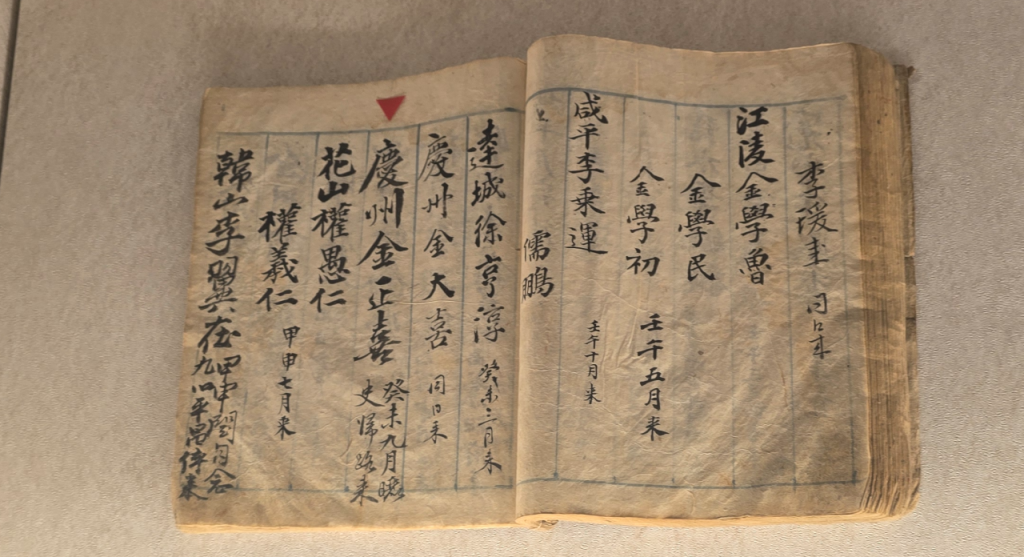 李瑗 同日来
江陵金學魯
金學民
金學初 壬午五月来
咸平李乘運 壬午十月来
儒鵬
達城徐亨淳 癸未三月来
慶州金大喜 同日来
慶州金正喜 癸未九月曬
史歸路来
花山權愚仁
權羲仁 甲申七月来
韓山李翼在 甲申閏月念
九以平昌倅来